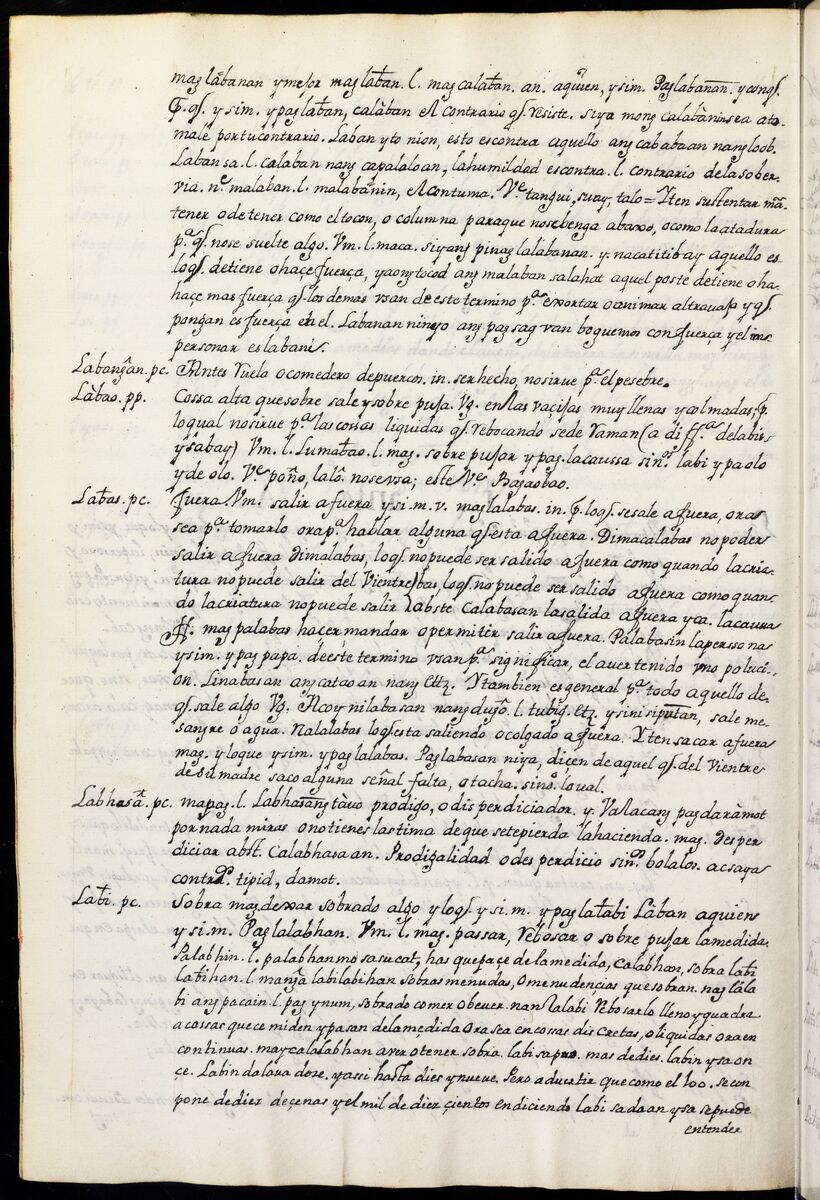 mag lâbanan y mejor mag laban. l. mag calaban. an. aquien, y sim. Paglabanan. y con qȷ.
P. qȷ. y sim. y pag laban, calaban el contrario qȷ. resiste. siya mong calabanin sea ata-
male por tu contrario. Laban yto nion, esto es contra aquello ang cababaan nang loob.
Laban sa. l. calaban nang capalaloan, la humildad es contra. l. contrario de la sober-
via. n.e malaban. l. malabanin, el contuma. V.e tangui, suay, talo = Yten sustentar mā-
tener o detener como el tocon, o columna para que no se benga abaxo, o como la atadura
p.a qȷ. no se suelte algo. Vm. l. maca. siyang pinag lalabanan. y. nacatitibay aquello es
lo qȷ. detiene o haçe fuerça, yaong tocod ang malaban sa lahat aquel poste detiene o ha-
haçe mas fuerça qȷ. los demas vsan de este termino p.a exortar o animar al trauajo y qȷ.
pongan esfuerça en el. Labanan ninyo ang pag sag van boguemos con fuerça y el im-
personar es labani.
Labangan. pc. Antes Vuela o comedero de puercos. in. ser hecho, no sirue p.a el pesebre.
Làbao. pp. Cossa alta que sobre sale y sobre puja. Vg. en las vacijas muy llenas y colmadas, p.
lo qual no sirue p.a las cossas liquidas qȷ. rebocando se derraman (a diff.a de labis
y sabay) Vm. l. Lumabao. l. mag. sobre pujar y pag. la caussa sin.o labi y paolo
y de olo. V.e poño, lalo. no se vsa; este V.e Bajaobao.
Labas. pc. fuera. Vm. salir a fuera y si. m. v. mag lalabas. in. P. lo qȷ. se sale a fuera, ora
sea p.a tomarlo ora p.a hablar alguna qȷ esta a fuera. Dimacalabas no poder
salir a fuera dimalabas, lo qȷ. no puede ser salido a fuera como quando la cria-
tura no puede salir del Vientre) bas, lo qȷ. no puede ser salido a fuera como quan-
do la criatura no puede salir) abste calabasan la salida a fuera y ca. la caussa
ff. mag palabas hacer mandar o permitir salir a fuera. Palabasin la persona
y sim. y pag papa. de este termino vsan p.a significar, el auer tenido vno poluci-
on. Linabasan ang catao an nang Etz. Y tambien es general p.a todo aquello de
qȷ. sale algo Vg. Acoy nilabasan nang dugo. l. tubig. Etz. y sinisiputan, sale me
sangre o agua. Nalalabas lo qȷ esta saliendo o colgado a fuera. Yten sacar a fuera
mag. y lo que y sim. y pag lalabas. Paglabasan niya, diçen de aquel qȷ. del Vientre
de su madre saco alguna señal falta, o tacha. sino. loual.
Labhasâ. pc. mapag. l. Labhasang tàuo prodigo, o disperdiciador. y. Valacang pagdaràmot
por nada miras o no tienes lastima de que se te pierda la hacienda. mag. desper
diciar abst. Calabhasaan. Prodigalidad o desperdicio sin.o bolalos. acsaya
contr.o tipid, damot.
Labi. pc. Sobra mag. dexar sobrado algo y lo qȷ. y si. m. y pag lalabi Làban a quien
y si. m. Pag lalabhan. Vm. l. mag. passar, rebosar o sobre pujar la medida.
Palabhin. l. palabhan mo sa sucat, has que paçe de la medida, calabhan, sobra labi
labihan. l. manga labilabihan sobras menudas, o menudencias que sobran. nag làla
bi ang pacain. l. pag ynum, sobrado comer o beuer. nanlalabi rebosar lo lleno y quadra
a cossas que ce miden y pasan de la medida ora sea en cossas discretas, o liquidas ora en
continuas. maycalalabhan aver o tener sobra. labi sapuo. mas de dies. labin ysa on
çe. Labin dalaua doze. y assi hasta dies y nueve. Pero aduertir que como el 100. se con
pone de diez deçenas y el mil de diez çientos en diciendo labi sa daan y sa se puede
entender